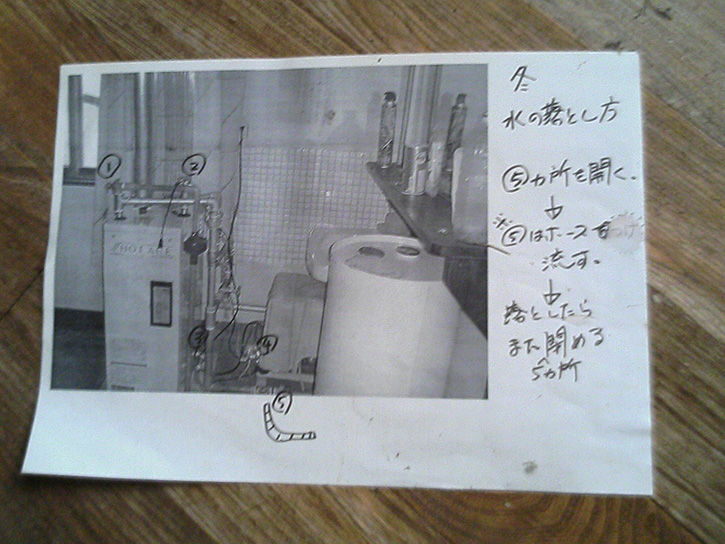 冬
水の落とし方
⑤カ所を開く。
↓
※⑤はホースをつけ
流す。
↓
落としたら
また閉める
5カ所
①
②
③
④
⑤